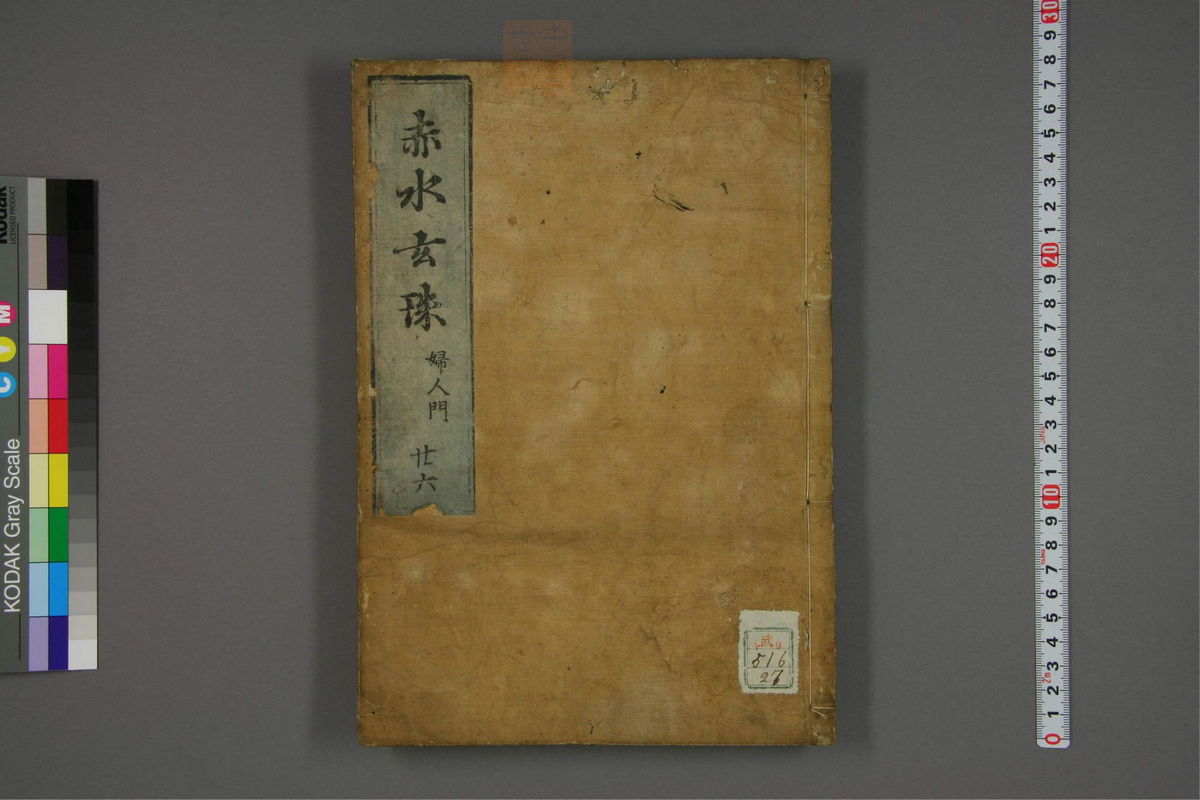 赤水玄珠
婦人門
廿六
武
516
27
KODAK Gray Scale
Kodak
LICENSED PRODUCT
C Y M
30
9
8
7
6
5
4
3
2
1
20
9
8
7
6
5
4
3
2
1
10
9
8
7
6
5
4
3
2
1
0
2m